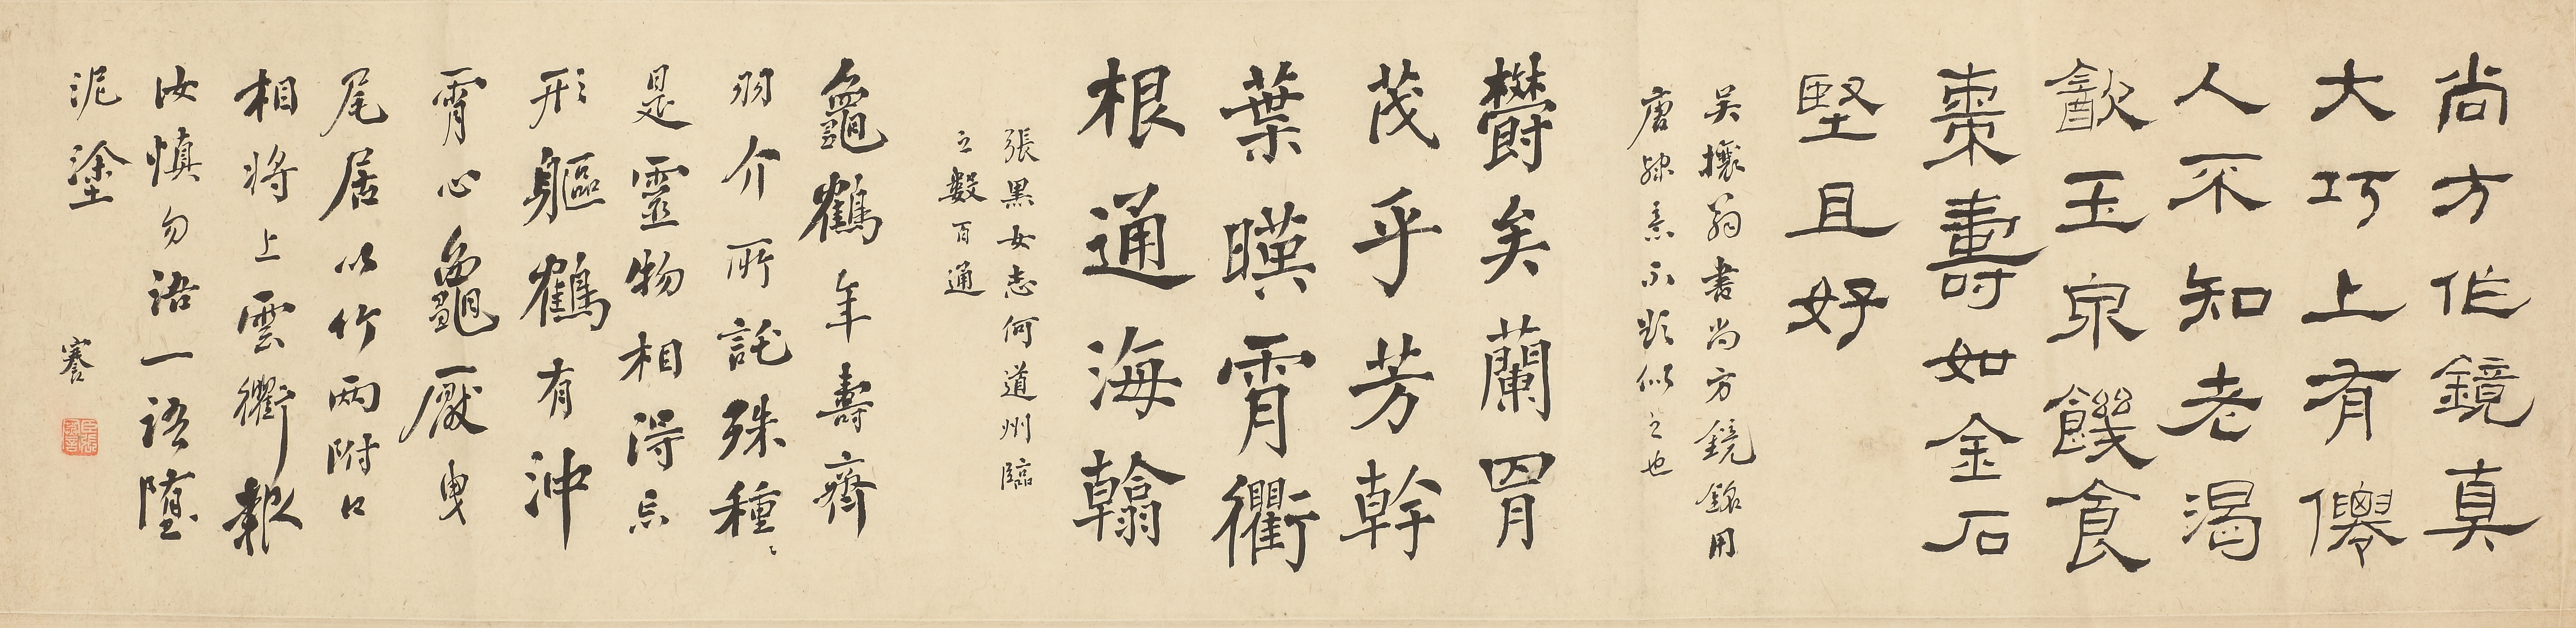 尚方作鏡真
大巧上有仙
人不知老渴
飲玉泉饑食
棗壽如金石
堅且好
吳攘翁書尚方鏡銘用
唐隸意求其似之也
欝矣蘭胃
茂乎芳幹
葉暎霄衢
根通海翰
張黑女志何道州臨
之數百通
龜鶴年壽齊
羽介所託殊種〻
是靈物相得忘
形軀鶴有沖
霄心龜厭曳
尾居以竹兩附口
相將上雲衢報
汝慎勿語一語墮
泥塗
謇